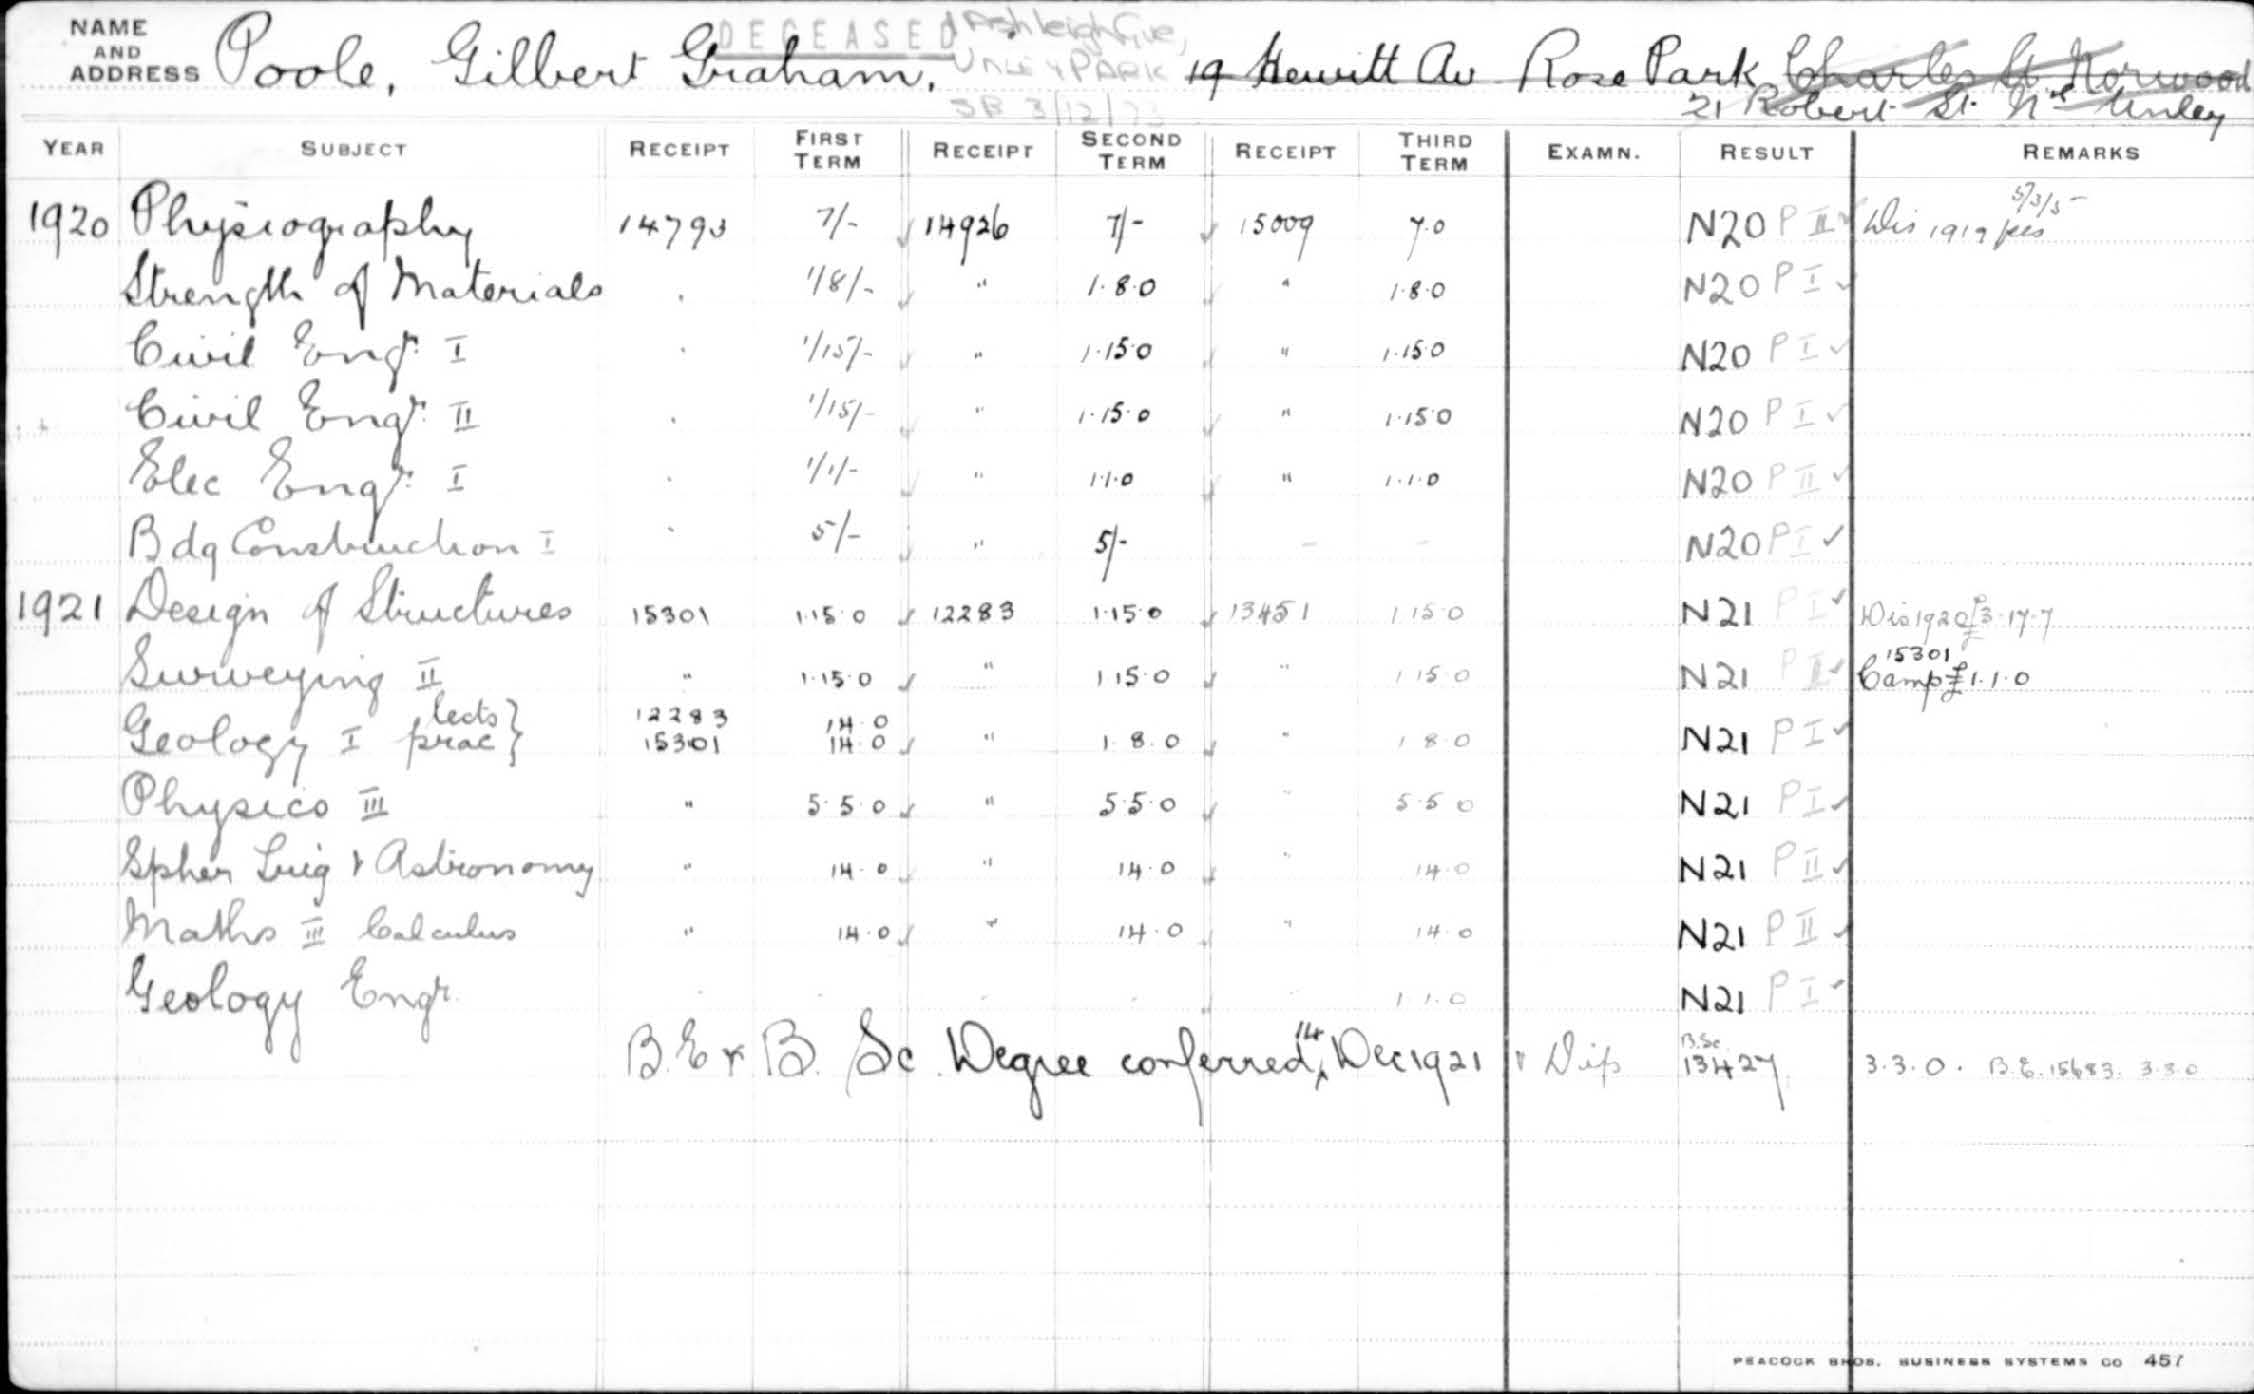 NAME AND ADDRESS Poole, Gilbert Graham. DECEASED Ashleigh Ave, UNLEY PARK 19 Hewitt Av Rose Park Charles St Norwood
SB 3/12/73 21 Robert St Nth Unley
YEAR SUBJECT RECEIPT FIRST TERM RECEIPT SECOND TERM RECEIPT THIRD TERM EXAMN. RESULT REMARKS
1920 Physiography 14793 7/- 14926 7/- 15009 7.0 N20 P II ✓ Dis 1919 fees 5/3/5-
Strength of Materials . 1/8/- " 1.8.0 " 1.8.0 N20 P I ✓
Civil Engr. I . 1/15/- " 1.15.0 " 1.15.0 N20 P I ✓
Civil Engr. II . 1/15/- " 1.15.0 " 1.15.0 N20 P I ✓
Elec Engr. I . 1/1/- " 1.1.0 " 1.1.0 N20 P II ✓
Bdg Construction I . 5/- " 5/- - - N20 P I ✓
1921 Design of Structures 15301 1.15.0 ✓ 12283 1.15.0 ✓ 13451 1.15.0 N21 P I ✓ Dis 1920 £3.17.7
Surveying II " 1.15.0 ✓ " 1.15.0 ✓ " 1.15.0 N21 P II ✓ 15301 Camp £1.1.0
Geology I lects } 12283 14.0
prac } 15301 14.0 ✓ " 1.8.0 ✓ " 1.8.0 N21 P I ✓
Physics III " 5.5.0 ✓ " 5.5.0 ✓ " 5.5.0 N21 P I ✓
Spher Trig & Astronomy " 14.0 ✓ " 14.0 ✓ " 14.0 N21 P II ✓
Maths III Calculus " 14.0 ✓ " 14.0 ✓ " 14.0 N21 P II ✓
Geology Engr. 1.1.0 N21 P I ✓
B.E & B. Sc. Degree conferred 14 Dec 1921 & Dip B.Sc. 13427 3.3.0. B.E. 15683. 3.3.0
PEACOCK BROS. BUSINESS SYSTEMS CO 457